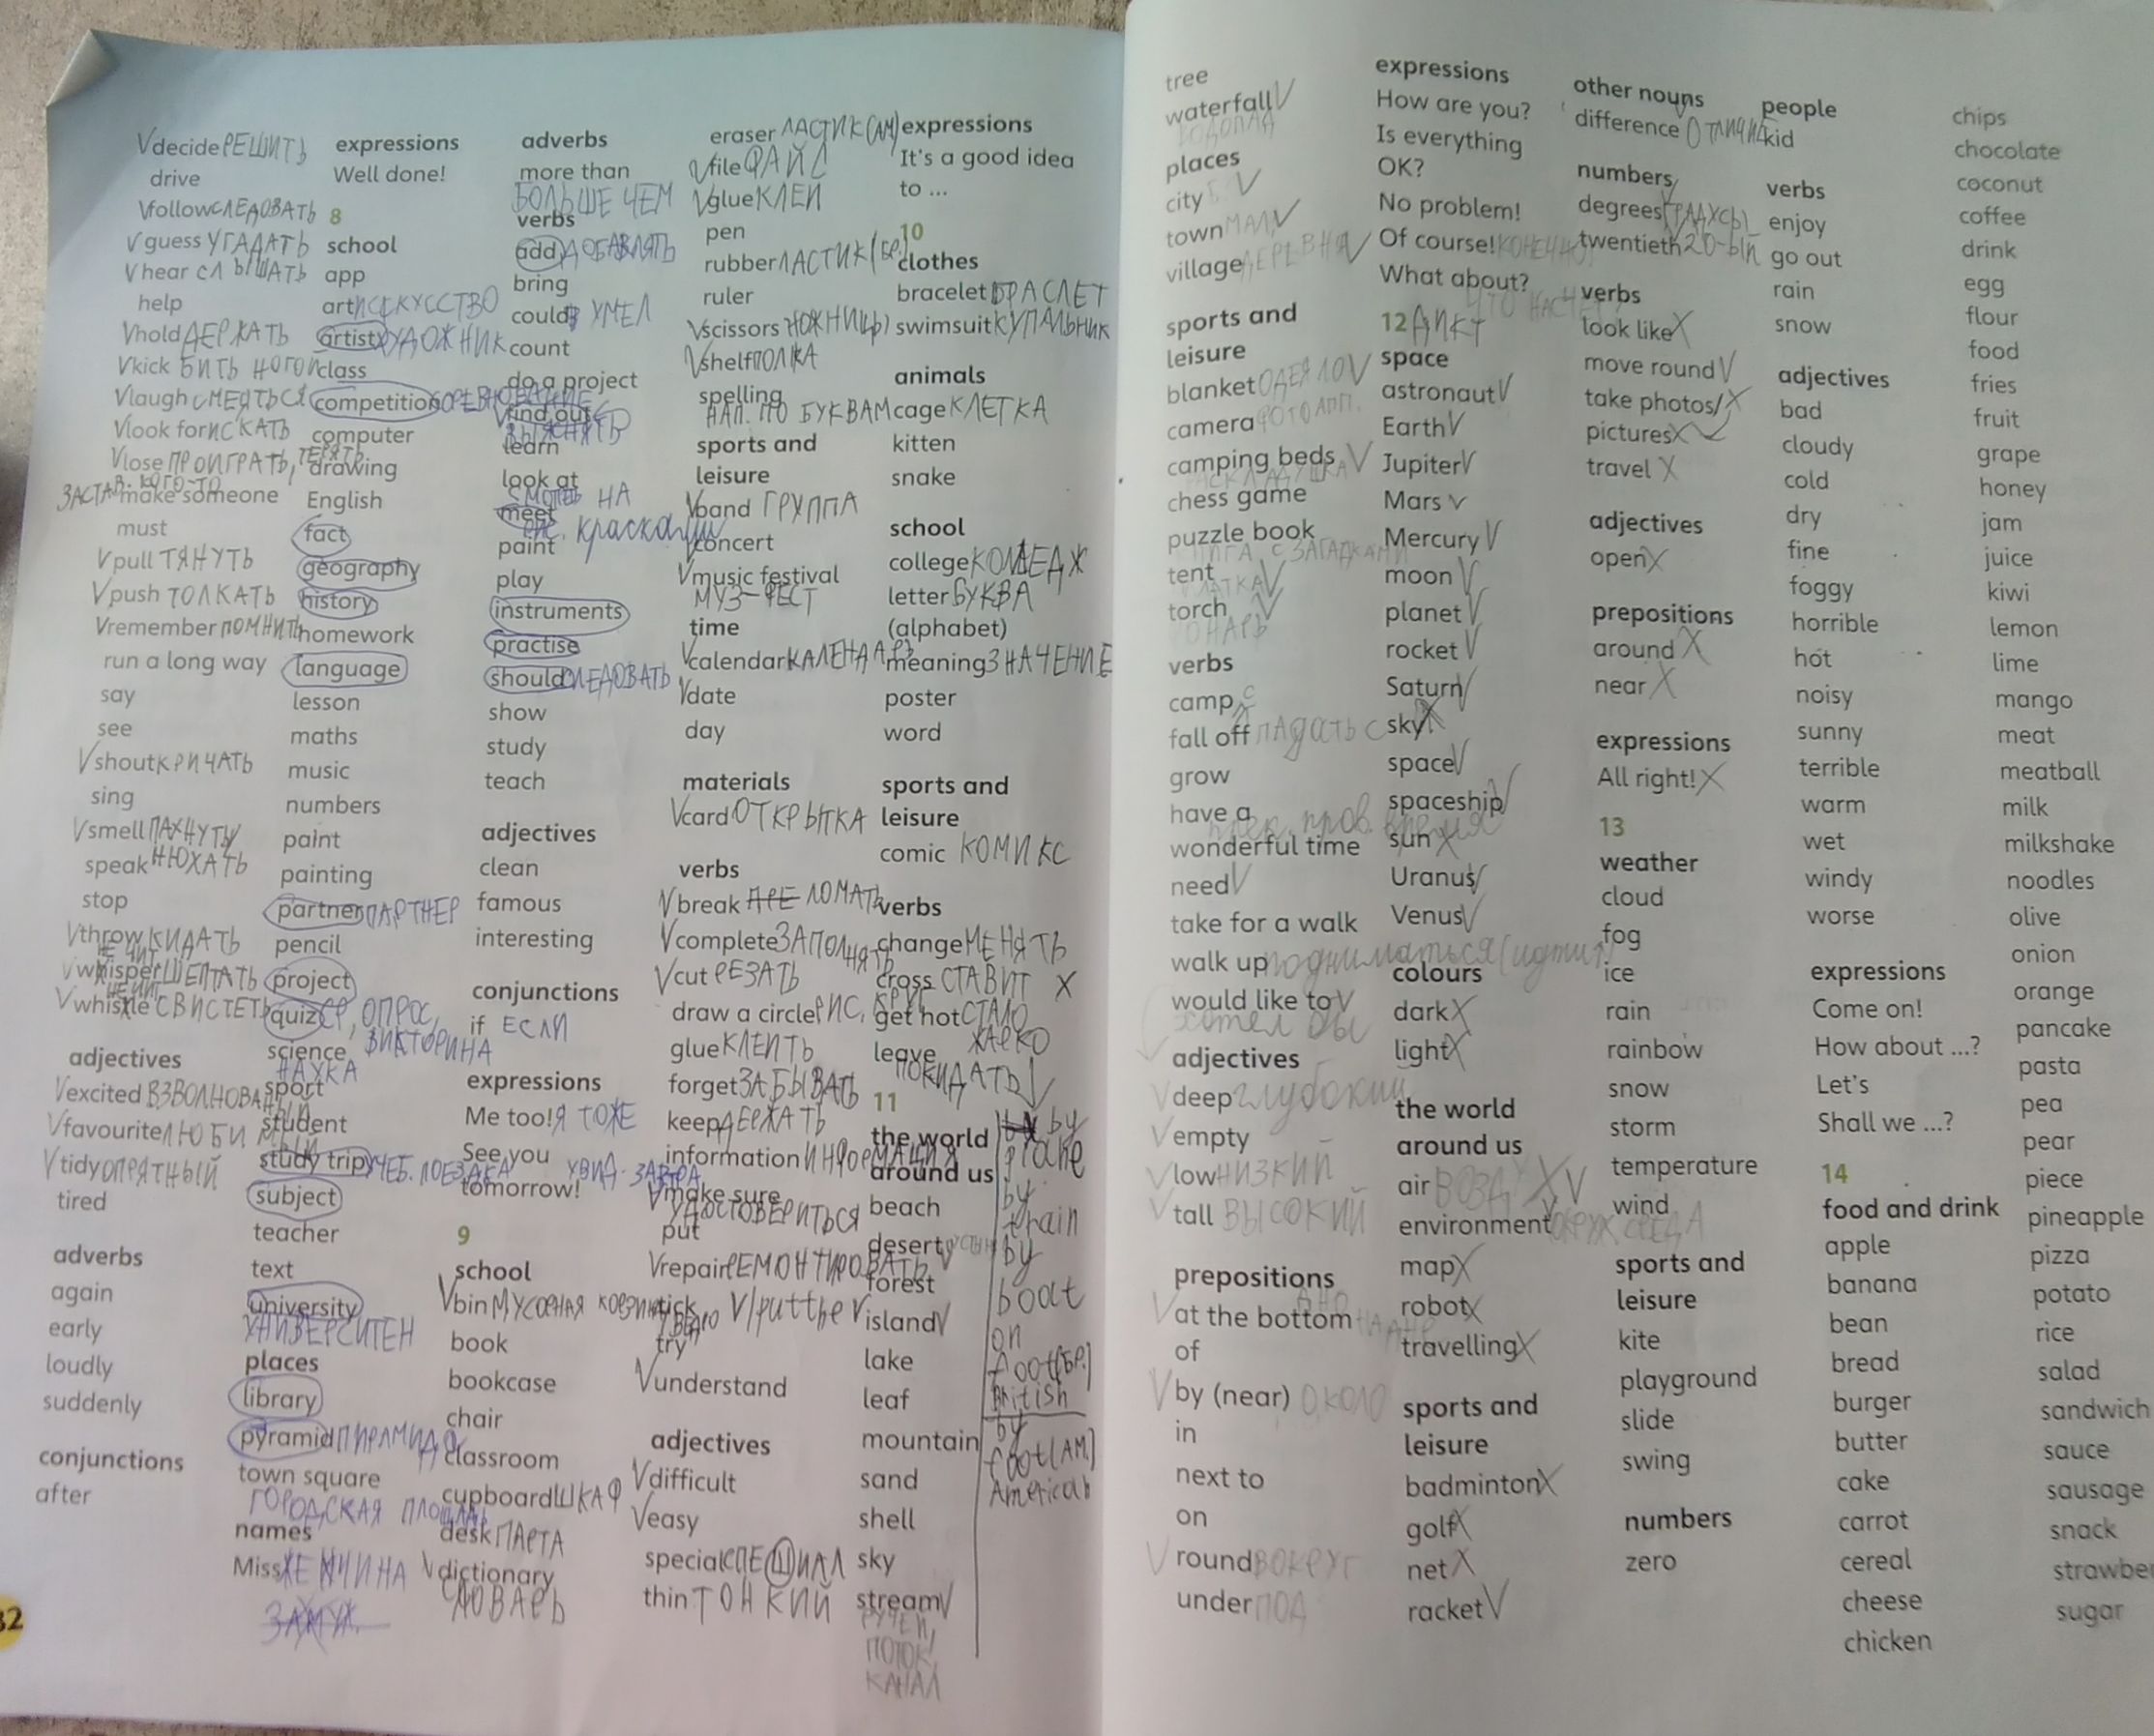 Vdecide РЕШИТЬ
drive
Vfollow СЛЕДОВАТЬ
V guess УГАДАТЬ
V hear СЛЫШАТЬ
help
Vhold ДЕРЖАТЬ
Vkick БИТЬ НОГОЙ
Vlaugh СМЕЯТЬСЯ
Vlook for ИСКАТЬ
Vlose ПРОИГРАТЬ, ТЕРЯТЬ
ЗАСТАВ. КОГО-ТО
make someone
must
V pull ТЯНУТЬ
V push ТОЛКАТЬ
Vremember ПОМНИТЬ
run a long way
say
see
V shout КРИЧАТЬ
sing
Vsmell ПАХНУТЬ/
НЮХАТЬ
speak
stop
Vthrow КИДАТЬ
НЕ ЧИТ
Vwhisper ШЕПТАТЬ
Vwhistle СВИСТЕТЬ
adjectives
Vexcited ВЗВОЛНОВАНЫЙ
Vfavourite ЛЮБИМЫЙ
V tidy ОПРЯТНЫЙ
tired
adverbs
again
early
loudly
suddenly
conjunctions
after
expressions
Well done!
8
school
app
art ИСКУССТВО
artist ХУДОЖНИК
class
competition СОРЕВНОВАНИЕ
computer
drawing
English
fact
geography
history
homework
language
lesson
maths
music
numbers
paint
painting
partner ПАРТНЕР
pencil
project
quiz ОПРОС,
ВИКТОРИНА
science
НАУКА
sport
student
study trip УЧЕБ. ПОЕЗДКА
subject
teacher
text
university
УНИВЕРСИТЕН
places
library
pyramid ПИРАМИДА
town square
ГОРОДСКАЯ ПЛОЩАДЬ
names
Miss ЖЕНЧИНА
adverbs
more than
БОЛЬШЕ ЧЕМ
verbs
add ДОБАВЛЯТЬ
bring
could УМЕЛ
count
do a project
find out
ВЫЯСНЯТЬ
learn
look at
СМОТЕТЬ НА
meet
красками
paint
play
instruments
practise
should СЛЕДОВАТЬ
show
study
teach
adjectives
clean
famous
interesting
conjunctions
if ЕСЛИ
expressions
Me too! Я ТОЖЕ
See you УВИД. ЗАВТРА
tomorrow!
9
school
Vbin МУСОРНАЯ КОРЗИНА
book
bookcase
chair
classroom
cupboard ШКАФ
desk ПАРТА
V dictionary
СЛОВАРЬ
eraser ЛАСТИК (АМ)
Vfile ФАЙЛ
Vglue КЛЕЙ
pen
rubber ЛАСТИК (БР.)
ruler
Vscissors НОЖНИЦЫ
Vshelf ПОЛКА
spelling
НАП. ПО БУКВАМ
sports and
leisure
Vband ГРУППА
Vconcert
Vmusic festival
МУЗ-ФЕСТ
time
Vcalendar КАЛЕНДАРЬ
Vdate
day
materials
Vcard ОТКРЫТКА
verbs
V break ЛОМАТЬ
V complete ЗАПОЛНЯТЬ
Vcut РЕЗАТЬ
draw a circle РИС. КРУГ
glue КЛЕИТЬ
forget ЗАБЫВАТЬ
keep ДЕРЖАТЬ
information ИНФОРМАЦИЯ
Vmake sure
УДОСТОВЕРИТЬСЯ
put
Vrepair РЕМОНТИРОВАТЬ
tick V/put the V
try
Vunderstand
adjectives
Vdifficult
Veasy
special СПЕШИАЛ
thin ТОНКИЙ
expressions
It's a good idea
to ...
10
clothes
bracelet БРАСЛЕТ
swimsuit КУПАЛЬНИК
animals
cage КЛЕТКА
kitten
snake
school
college КОЛЛЕДЖ
letter БУКВА
(alphabet)
meaning ЗНАЧЕНИЕ
poster
word
sports and
leisure
comic КОМИКС
verbs
change МЕНЯТЬ
cross СТАВИТ X
get hot СТАЛО
ЖАРКО
leave
ПОКИДАТЬ
11
the world
around us
beach
desert
forest
island V
lake
leaf
mountain
sand
shell
sky
stream V
РУЧЕЙ,
ПОТОК,
КАНАЛ
by
plane
by
train
by
boat
on
foot (БР.)
British
by
foot (АМ.)
American
tree
waterfall V
ВОДОПАД
places
city V
town V
village ДЕРЕВНЯ V
sports and
leisure
blanket ОДЕЯЛО V
camera ФОТОАПП.
camping beds V
РАСКЛАДУШКА
chess game
puzzle book
КНИГА С ЗАГАДКАМИ
tent V
torch V
ФОНАРЬ
verbs
camp
fall off падать с
grow
have a
wonderful time
need V
take for a walk
walk up подниматься (идти)
would like to V
хотел бы
adjectives
V deep глубокий
V empty
V low НИЗКИЙ
V tall ВЫСОКИЙ
prepositions
ДНО
V at the bottom НА ДНЕ
of
V by (near) ОКОЛО
in
next to
on
V round ВОКРУГ
under ПОД
expressions
How are you?
Is everything
OK?
No problem!
Of course! КОНЕЧНО!
What about?
ЧТО НАСЧЕТ
12 ДИКТ
space
astronaut V
Earth V
Jupiter V
Mars V
Mercury V
moon V
planet V
rocket V
Saturn V
sky X
space V
spaceship V
sun X
Uranus V
Venus V
colours
dark X
light X
the world
around us
air ВОЗДУХ V
environment ОКРУЖ СРЕДА
map X
robot X
travelling X
sports and
leisure
badminton X
golf X
net X
racket V
other nouns
difference ОТЛИЧИЕ
numbers
degrees ГРАДУСЫ
twentieth 20-ЫЙ
verbs
look like X
move round V
take photos/ X
pictures X
travel X
adjectives
open X
prepositions
around X
near X
expressions
All right! X
13
weather
cloud
fog
ice
rain
rainbow
snow
storm
temperature
wind
sports and
leisure
kite
playground
slide
swing
numbers
zero
people
kid
verbs
enjoy
go out
rain
snow
adjectives
bad
cloudy
cold
dry
fine
foggy
horrible
hot
noisy
sunny
terrible
warm
wet
windy
worse
expressions
Come on!
How about ...?
Let's
Shall we ...?
14
food and drink
apple
banana
bean
bread
burger
butter
cake
carrot
cereal
cheese
chicken
chips
chocolate
coconut
coffee
drink
egg
flour
food
fries
fruit
grape
honey
jam
juice
kiwi
lemon
lime
mango
meat
meatball
milk
milkshake
noodles
olive
onion
orange
pancake
pasta
pea
pear
piece
pineapple
pizza
potato
rice
salad
sandwich
sauce
sausage
snack
strawbe
sugar
32